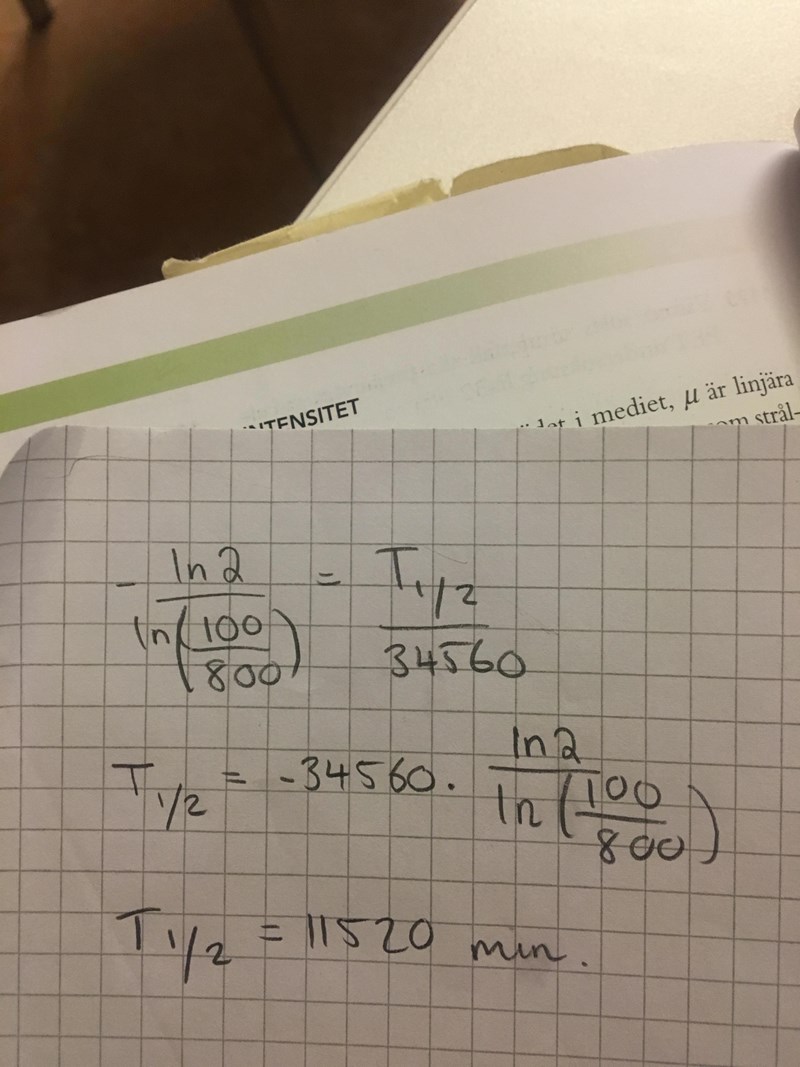 NTENSITET
i mediet, μ är linjära
strål-
- ln 2 / ln(100/800) = T1/2 / 34560
T1/2 = -34560 · ln 2 / ln(100/800)
T1/2 = 11520 min.